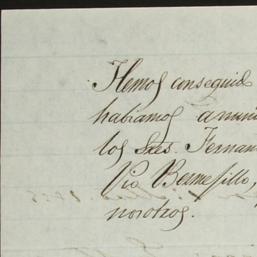 Hemos conseguid
habiamos anun
los Sres. Fernan
Pio Bermejillo,
nosotros.